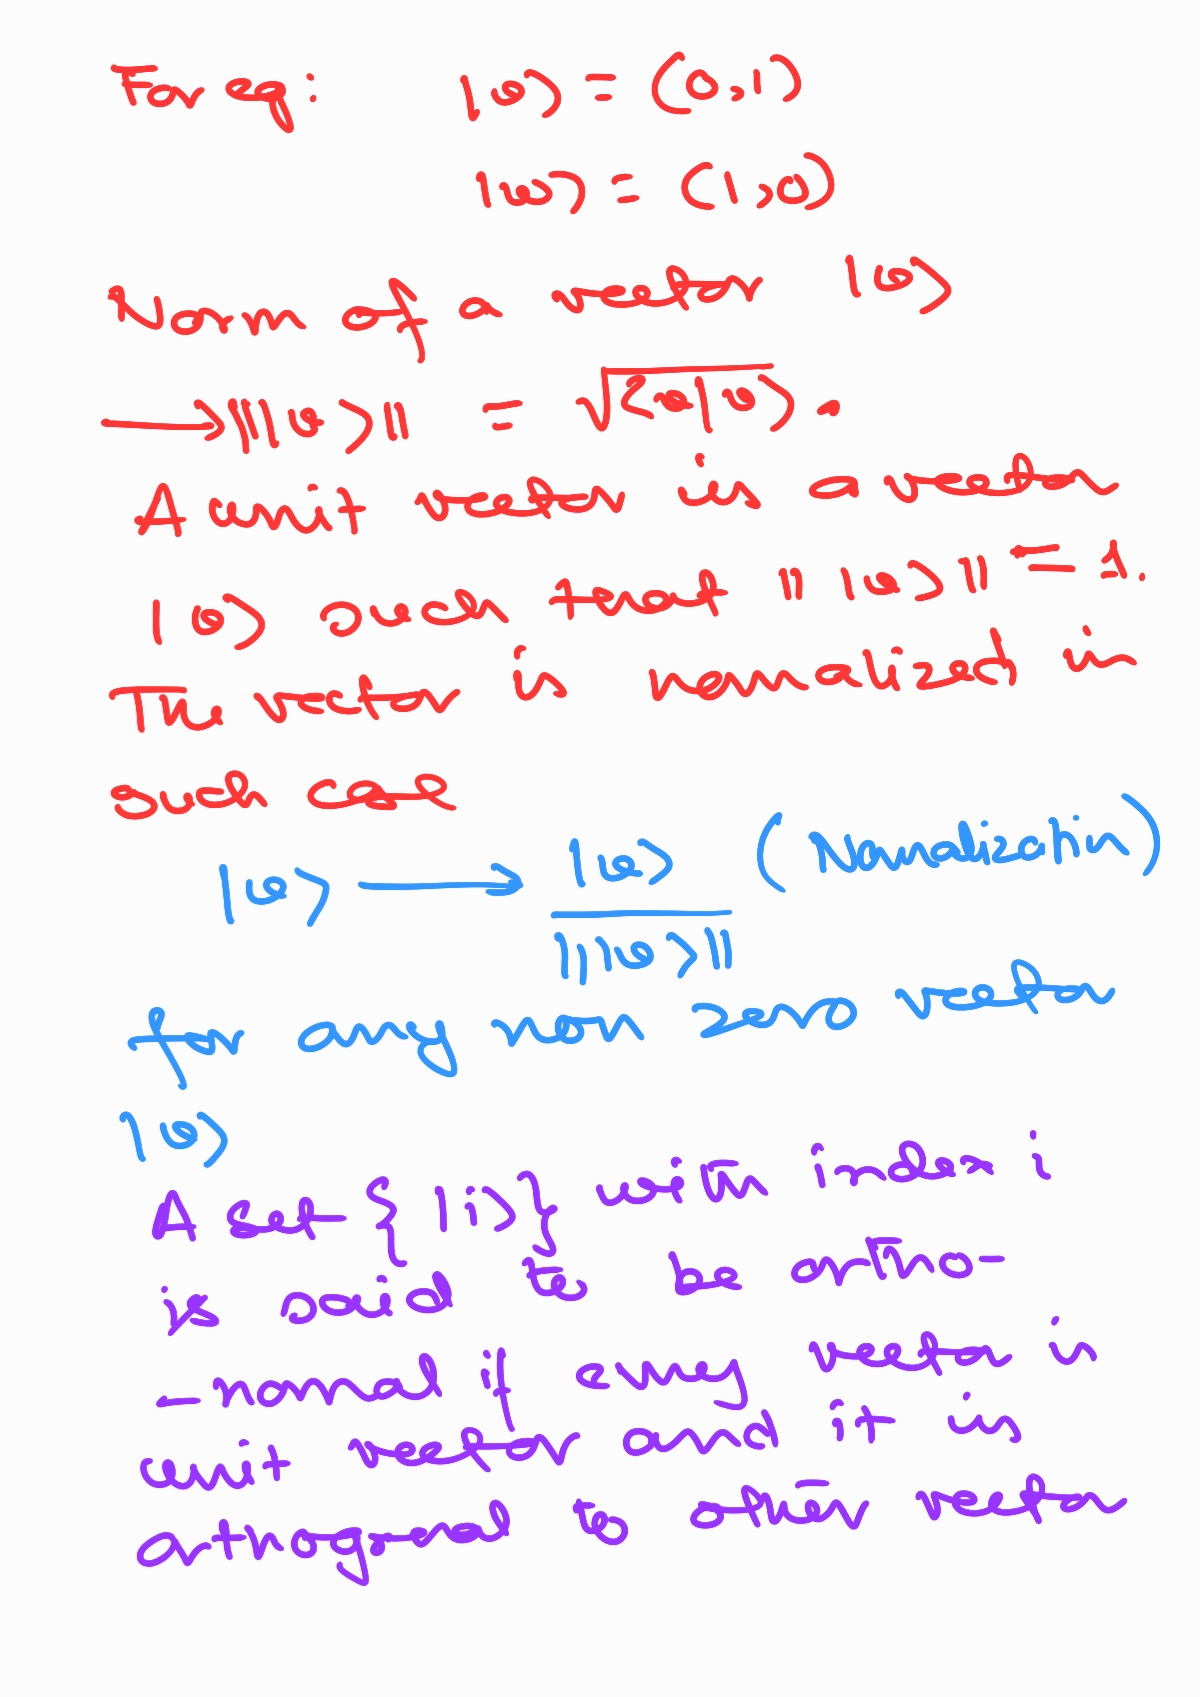 For eg: |v⟩ = (0,1)
|w⟩ = (1,0)
Norm of a vector |v⟩
→ || |v⟩ || = √⟨v|v⟩.
A unit vector is a vector
|v⟩ such that || |v⟩ || = 1.
The vector is normalized in
such case
|v⟩ → |v⟩ / || |v⟩ || (Normalization)
for any non zero vector
|v⟩
A set { |i⟩ } with index i
is said to be ortho-
-normal if every vector is
unit vector and it is
orthogonal to other vector